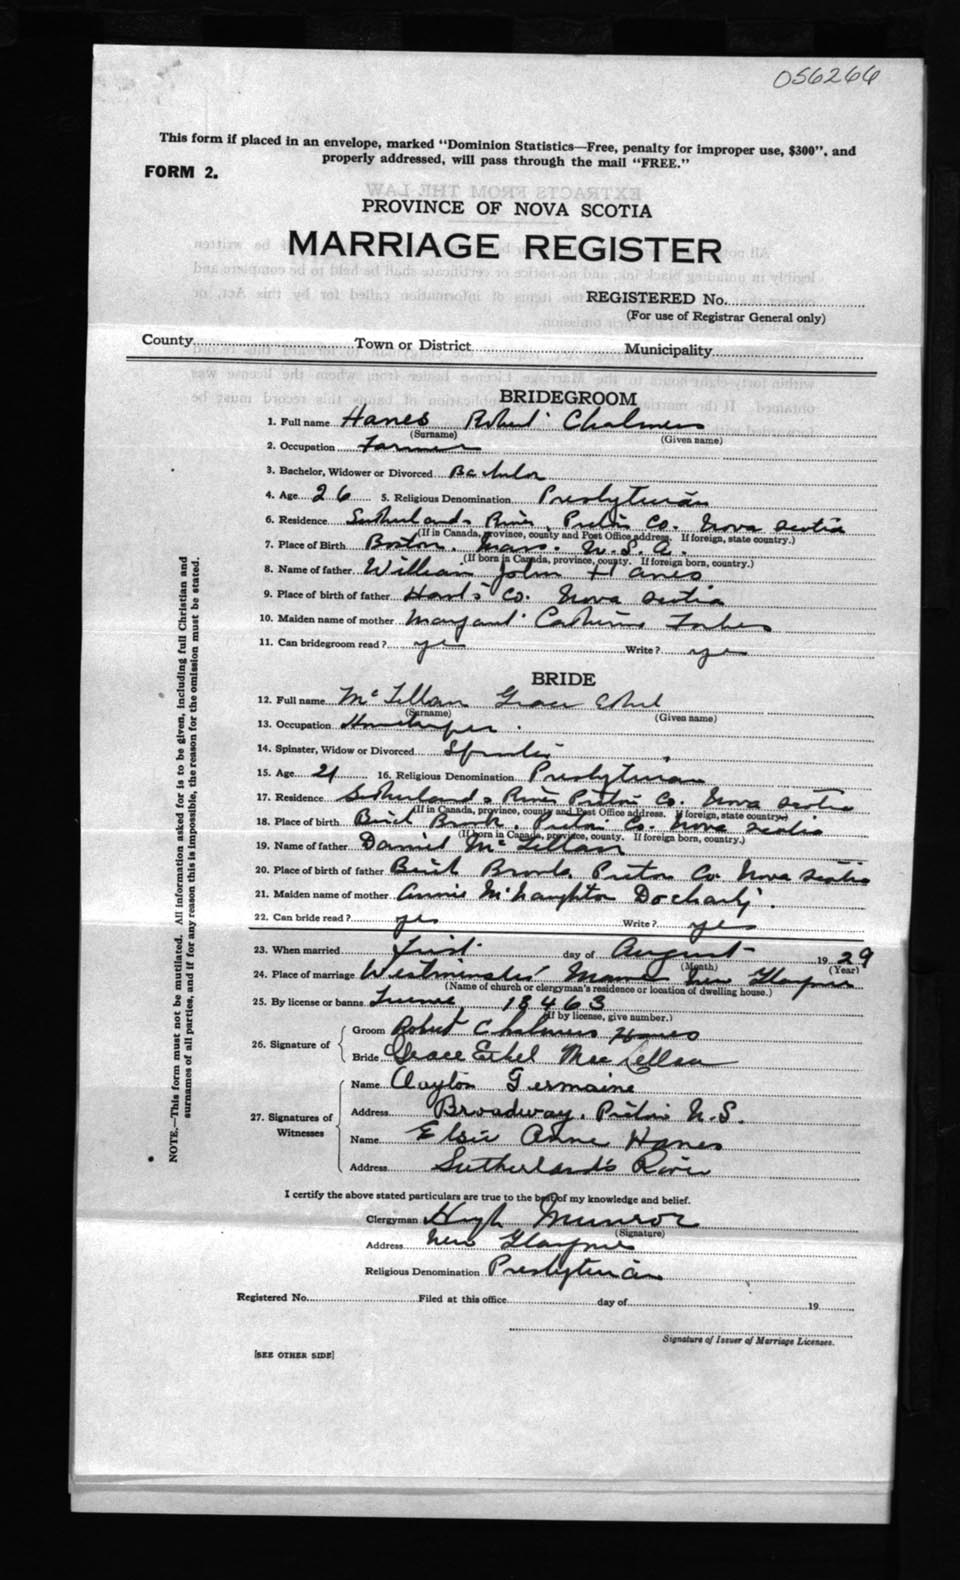 056266
This form if placed in an envelope, marked "Dominion Statistics—Free, penalty for improper use, $300", and
properly addressed, will pass through the mail "FREE."
FORM 2.
PROVINCE OF NOVA SCOTIA
MARRIAGE REGISTER
REGISTERED No.
(For use of Registrar General only)
County Town or District Municipality
BRIDEGROOM
1. Full name Hanes Robert Chalmers
(Surname) (Given name)
2. Occupation Farmer
3. Bachelor, Widower or Divorced Bachelor
4. Age 26 5. Religious Denomination Presbyterian
6. Residence Sutherlands River, Pictou Co. Nova Scotia
(If in Canada, province, county and Post Office address. If foreign, state country.)
7. Place of Birth Boston, Mass. U.S.A.
(If born in Canada, province, county. If foreign born, country.)
8. Name of father William John Hanes
9. Place of birth of father Hants Co. Nova Scotia
10. Maiden name of mother Margaret Catherine Forbes
11. Can bridegroom read? yes Write? yes
BRIDE
12. Full name McLellan Grace Ethel
(Surname) (Given name)
13. Occupation Housekeeper
14. Spinster, Widow or Divorced Spinster
15. Age 21 16. Religious Denomination Presbyterian
17. Residence Sutherlands River Pictou Co. Nova Scotia
(If in Canada, province, county and Post Office address. If foreign, state country.)
18. Place of birth Birch Brook, Pictou Co. Nova Scotia
(If born in Canada, province, county. If foreign born, country.)
19. Name of father Daniel McLellan
20. Place of birth of father Brook Pictou Co Nova Scotia
21. Maiden name of mother Annie McNaughton
22. Can bride read? yes Write? yes
23. When married first day of August 1929
(Month) (Year)
24. Place of marriage Westminster Manse New Glasgow
(Name of church or clergyman's residence or location of dwelling house.)
25. By license or banns License 18463
(If by license, give number.)
26. Signature of
Groom Robert Chalmers Hanes
Bride Grace Ethel MacLellan
27. Signatures of Witnesses
Name Clayton Germaine
Address Broadway, Pictou N.S.
Name Elsie Anne Hanes
Address Sutherland's River
I certify the above stated particulars are true to the best of my knowledge and belief.
Clergyman Hugh Munroe
(Signature)
Address New Glasgow
Religious Denomination Presbyterian
Registered No. Filed at this office day of 19
Signature of Issuer of Marriage Licenses.
[SEE OTHER SIDE]
NOTE.—This form must not be mutilated. All information asked for is to be given, including full Christian and
surnames of all parties, and if for any reason this is impossible, the reason for the omission must be stated.